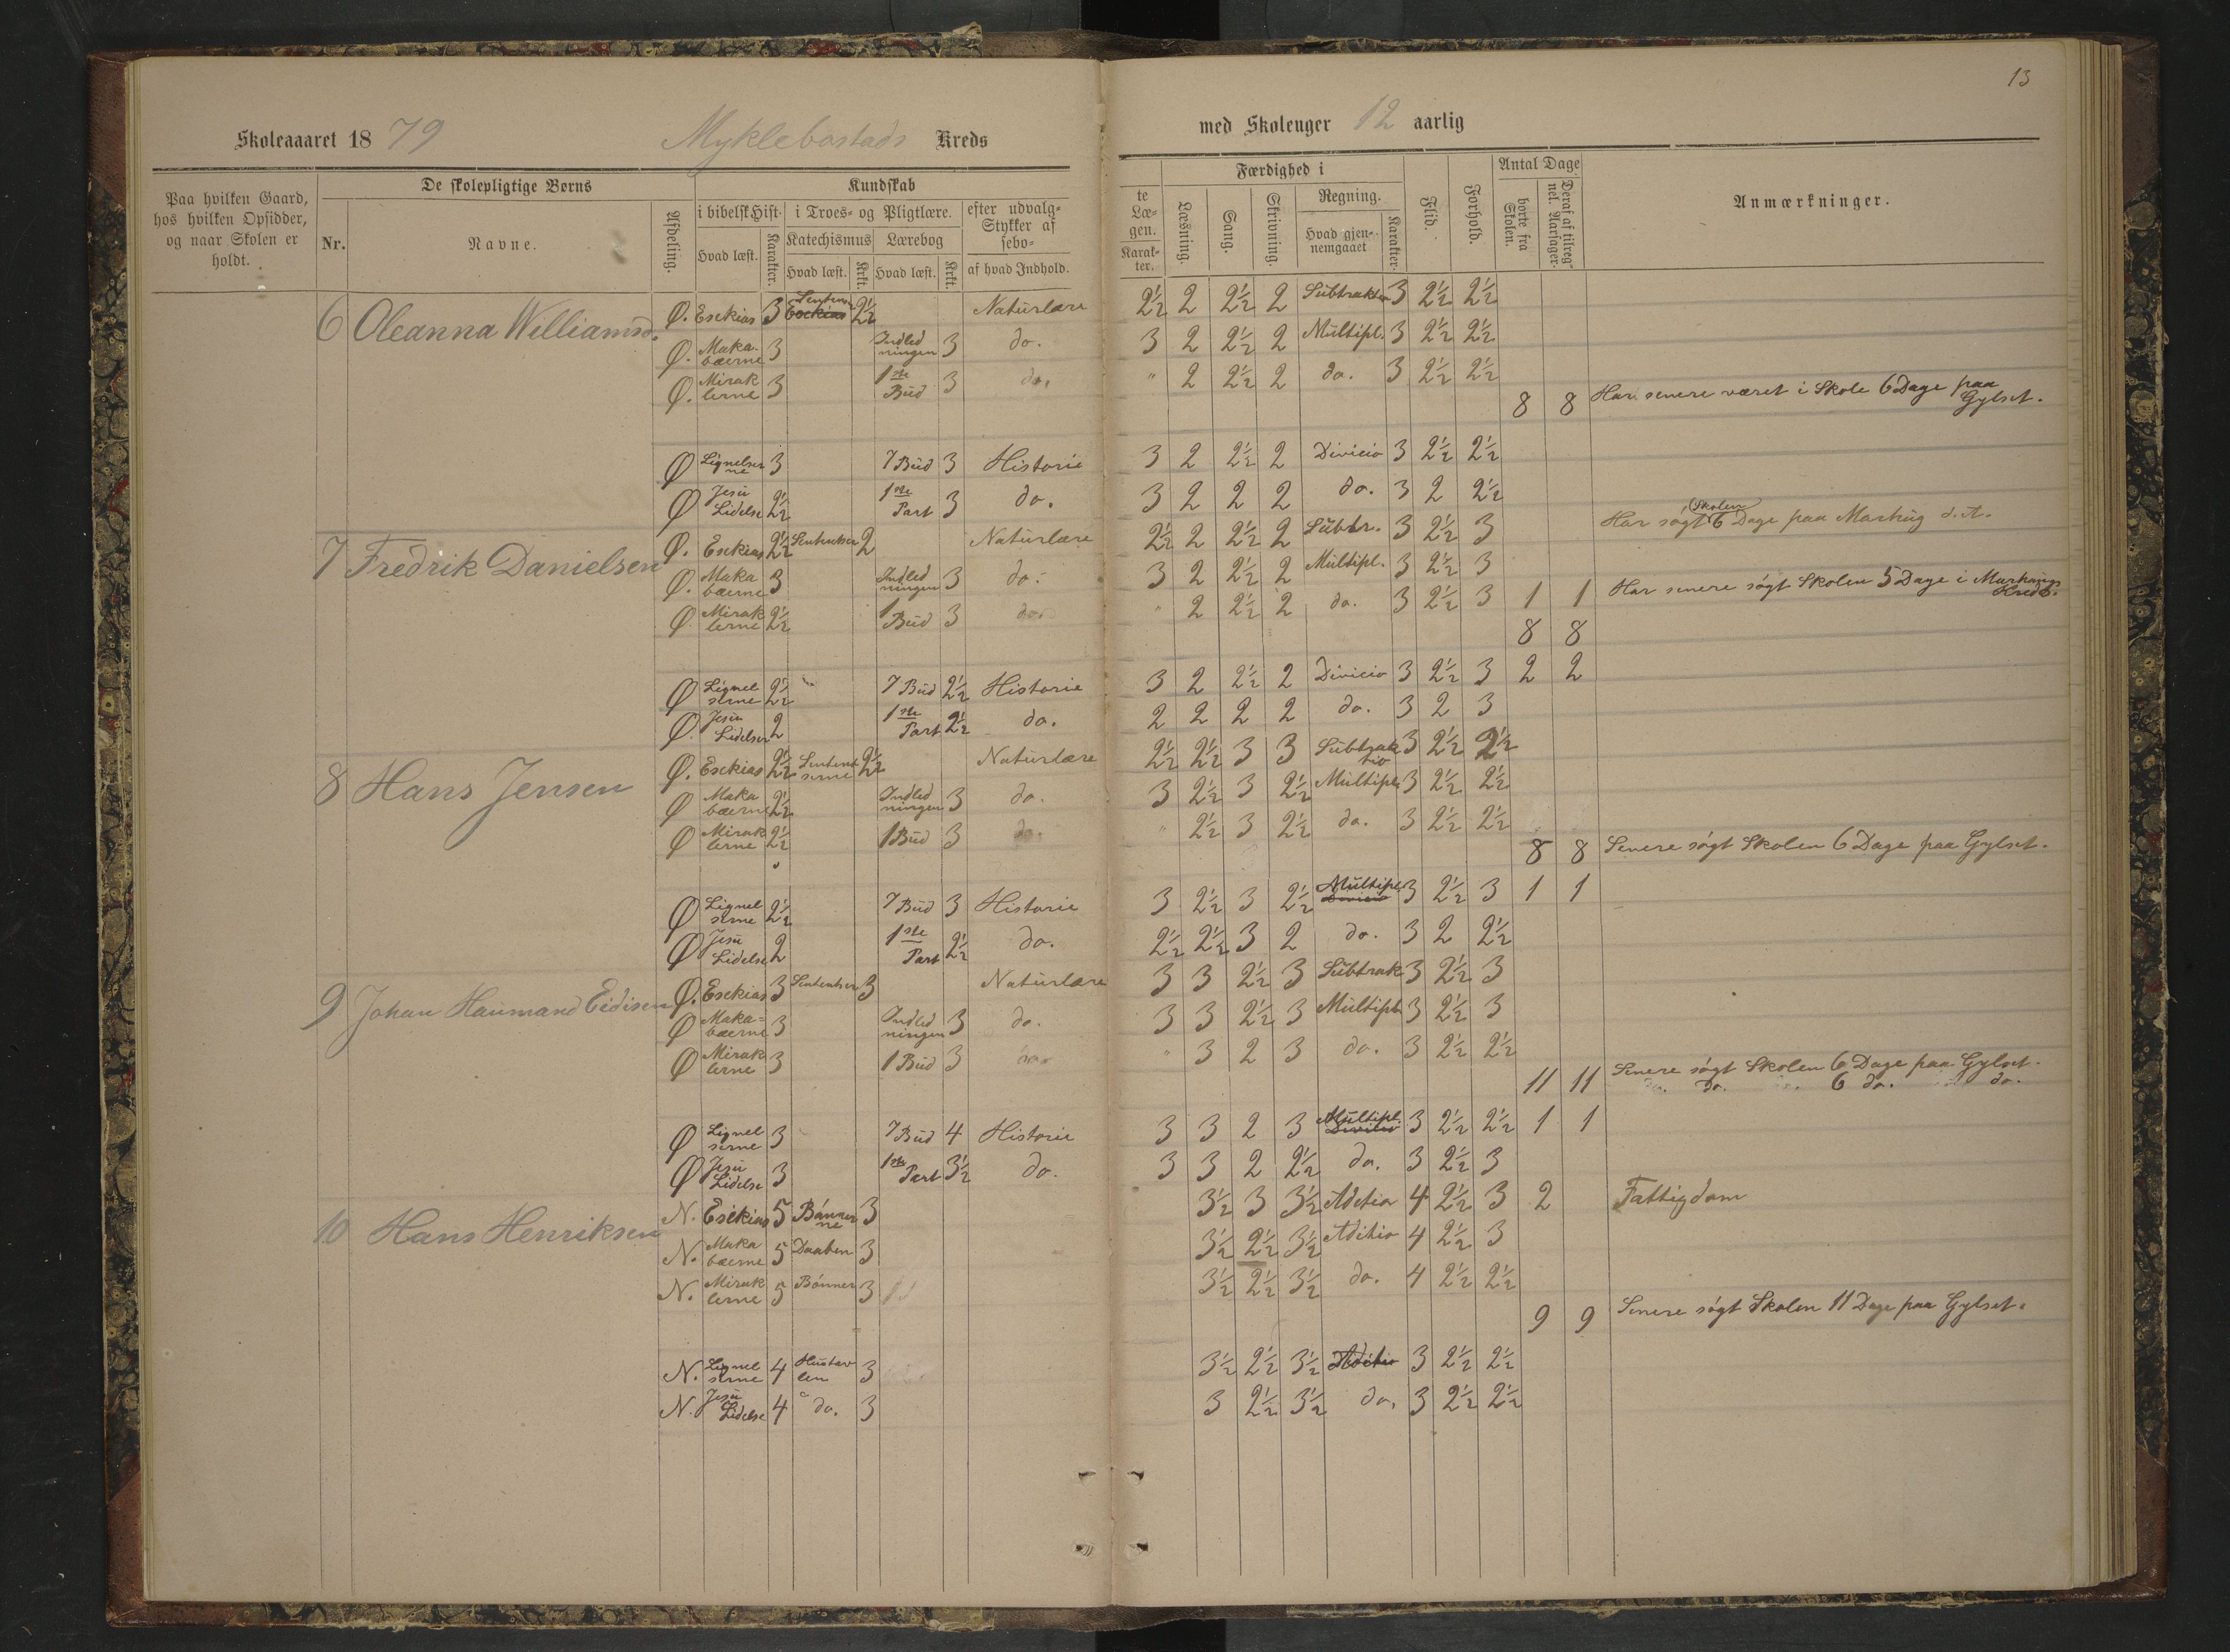 13
Skoleaaaret 1879 Myklebostads Kreds
med Skoleuger 12 aarlig
Paa hvilken Gaard, hos hvilken Opsidder, og naar Skolen er holdt.
De skolepligtige Børns
Nr. Navne. Afdeling.
Kundskab
i bibelsk Hist. i Troes- og Pligtlære. efter udvalg-
Stykker af
sebo=
Katechismus Lærebog
Hvad læst. Karakter. Hvad læst. Krkt. Hvad læst. Krkt. af hvad Indhold.
te Læ-
gen.
Karak-
ter.
Færdighed i
Læsning. Sang. Skrivning. Regning.
Hvad gjen-
nemgaaet Karakter.
Flid. Forhold.
Antal Dage
borte fra Skolen. Deraf af tilreg-
nel. Aarsager.
Anmærkninger.
6 Oleanna Williamsd. Ø. Esekias 3 Sentenser Esekias 2½ Naturlære 2½ 2 2½ 2 Subtraktio 3 2½ 2½
Ø. Makabæerne 3 Indledningen 3 do. 3 2 2½ 2 Multipl. 3 2½ 2½
Ø. Miraklerne 3 1ste Bud 3 do. " 2 2½ 2 do. 3 2½ 2½
8 8 Har senere været i Skole 6 Dage paa Gylset.
Ø Lignelserne 3 7 Bud 3 Historie 3 2 2½ 2 Divicio 3 2½ 2½
Ø Jesu Lidelse 2½ 1ste Part 3 do. 3 2 2 2 do. 3 2 2½
7 Fredrik Danielsen Ø. Esekias 2½ Sentenser 2 Naturlære 2½ 2 2½ 2 Subtr. 3 2½ 3 Har søgt Skolen 6 Dage paa Marhug d. A.
Ø. Makabæerne 3 Indledningen 3 do. 3 2 2½ 2 Multipl. 3 2½ 3
Ø. Miraklerne 2½ 1 Bud 3 do. " 2 2½ 2 do. 3 2½ 3 1 1 Har senere søgt Skolen 5 Dage i Marhugs Kreds.
8 8
Ø Lignelserne 2½ 7 Bud 2½ Historie 3 2 2½ 2 Divicio 3 2½ 3 2 2
Ø. Jesu Lidelser 2 1ste Part 2½ do. 2 2 2 2 do. 3 2 3
8 Hans Jensen Ø. Esekias 2½ Sentenserne 2½ Naturlære 2½ 2½ 3 3 Subtraktio 3 2½ 2½
Ø Makabæerne 2½ Indledningen 3 do. 3 2½ 3 2½ Multipl 3 2½ 2½
Ø Miraklerne 2½ 1 Bud 3 do. " 2½ 3 2½ do. 3 2½ 2½
8 8 Senere søgt Skolen 6 Dage paa Gylset.
Ø Lignelserne 2½ 7 Bud 3 Historie 3 2½ 3 2½ Multipl Divicio 3 2½ 3 1 1
Ø Jesu Lidelse 2 1ste Part 2½ do. 2½ 2½ 3 2 do. 3 2 2½
9 Johan Haumand Eidisen Ø. Esekias 3 Sentenser 3 Naturlære 3 3 2½ 3 Subtrak 3 2½ 3
Ø Makabæerne 3 Indledningen 3 do. 3 3 2½ 3 Multipl 3 2½ 3
Ø Miraklerne 3 1 Bud 3 do. " 3 2 3 do. 3 2½ 2½
11 11 Senere søgt Skolen 6 Dage paa Gylset.
do. do. 6 do. do.
Ø Lignelserne 3 7 Bud 4 Historie 3 3 2 3 Multipl. Divicio 3 2½ 2½ 1 1
Ø Jesu Lidelse 3 1ste Part 3½ do. 3 3 2 2½ do. 3 2½ 3
10 Hans Henriksen N. Esekias 5 Bønnerne 3 3½ 3 3½ Adetio 4 2½ 3 2 Fattigdom
N. Makabæerne 5 Daaben 3 3½ 2½ 3½ Aditio 4 2½ 3
N. Miraklerne 5 Bønner 3 3½ 2½ 3½ do. 4 2½ 2½
9 9 Senere søgt Skolen 11 Dage paa Gylset.
N. Lignelserne 4 Hustavlen 3 3½ 2½ 3½ Aditio 3 2½ 2½
N. Jesu Lidelse 4 do. 3 3 2½ 3½ do. 3 2½ 2½